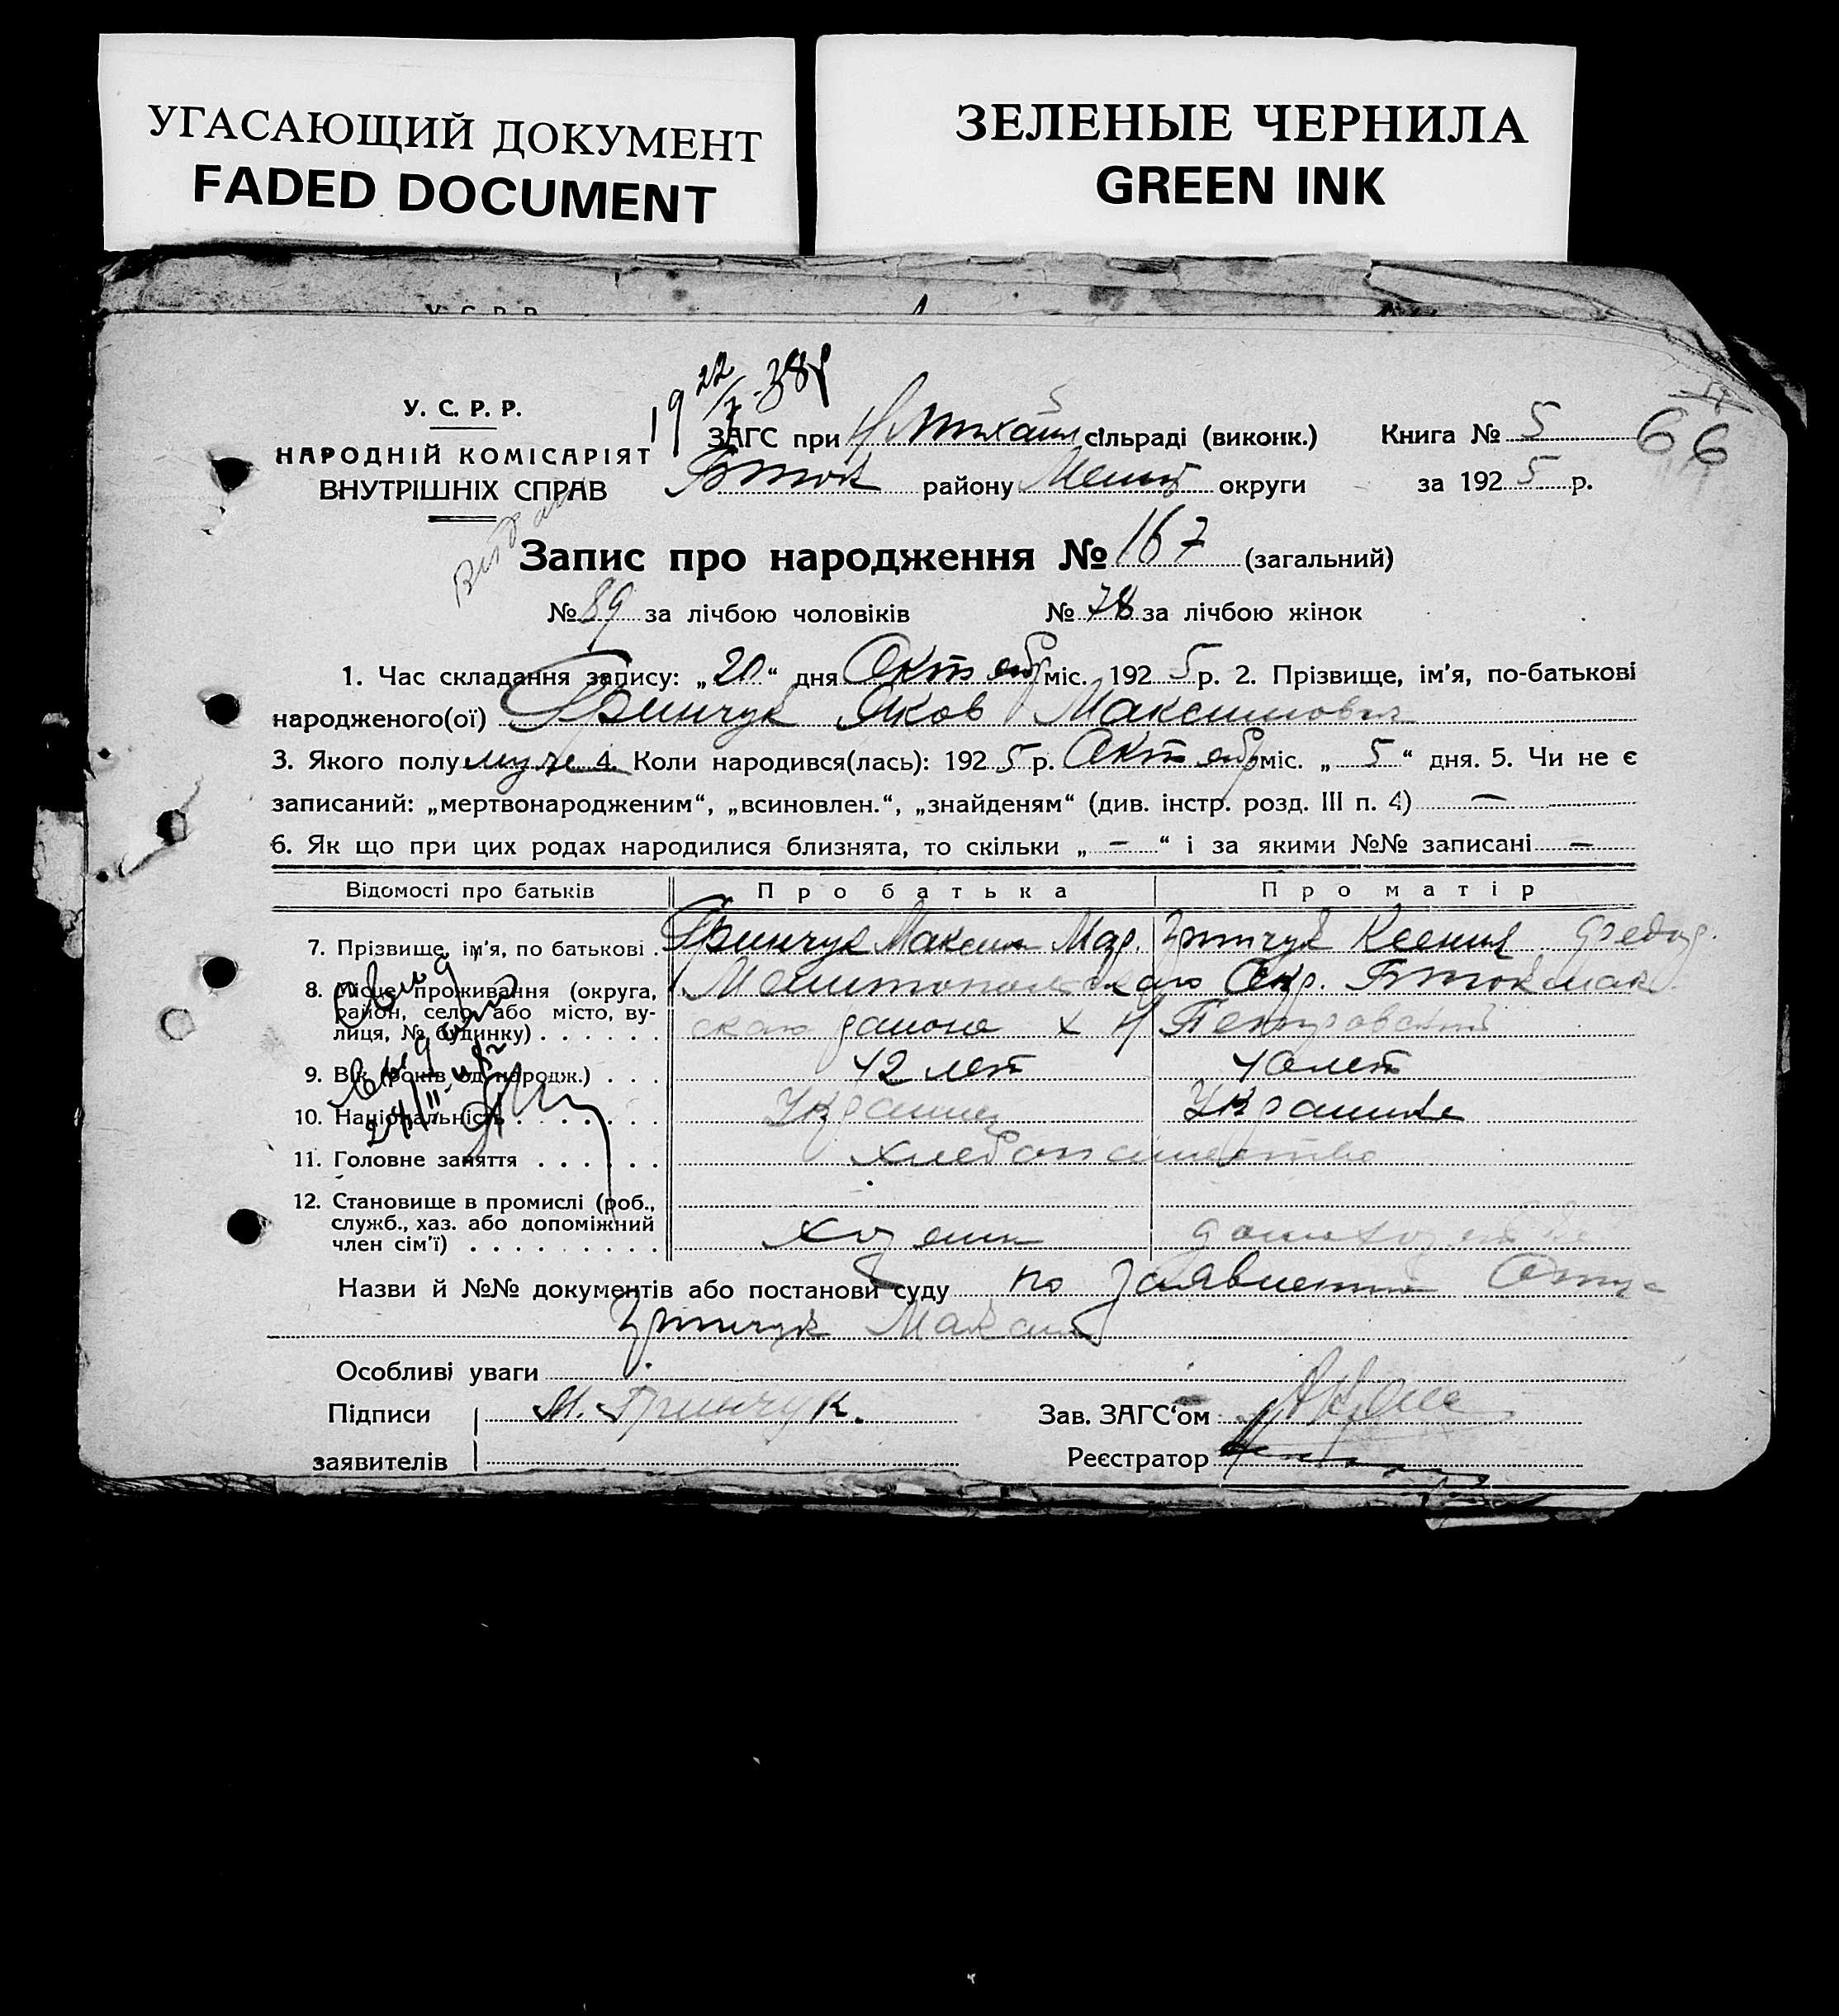 УГАСАЮЩИЙ ДОКУМЕНТ
FADED DOCUMENT
ЗЕЛЕНЫЕ ЧЕРНИЛА
GREEN INK
У. С. Р. Р.
66
У. С. Р. Р.
НАРОДНІЙ КОМІСАРІЯТ
ВНУТРІШНІХ СПРАВ
19 22/7 - 38
ЗАГС при Н Михайл сільраді (виконк.) Книга № 5
Бток району Мелит округи за 1925 р.
Запис про народження № 167 (загальний)
№ 89 за лічбою чоловіків № 78 за лічбою жінок
1. Час складання запису: „20“ дня Октябр міс. 1925 р. 2. Прізвище, ім'я, по-батькові
народженого(ої) Гринчук Яков Максимович
3. Якого полу муже 4. Коли народився(лась): 1925 р. Октябр міс. „5“ дня. 5. Чи не є
записаний: „мертвонародженим“, „всиновлен.“, „знайденям“ (див. інстр. розд. III п. 4) —
6. Як що при цих родах народилися близнята, то скільки „ – “ і за якими №№ записані —
Відомості про батьків Про батька Про матір
7. Прізвище, ім'я, по батькові . Гринчук Максим Гринчук Ксения Федор.
8. Місце проживання (округа, Мелитопольскаго Окр. Бтокмак
район, село або місто, ву- скаго района х Н Петровский
лиця, № будинку) . . . . . .
9. Вік (років од народж.) . . . 42 лет 40 лет
10. Національність . . . . . . . Украинец Украинка
11. Головне заняття . . . . . . хлебопашество
12. Становище в промислі (роб.,
служб., хаз. або допоміжний
член сім'ї) . . . . . . . . . хозяин домхоз
Назви й №№ документів або постанови суду по заявлению Отца
Гринчук Максим
Особливі уваги
Підписи М. Гринчук. Зав. ЗАГС'ом
заявителів Реєстратор